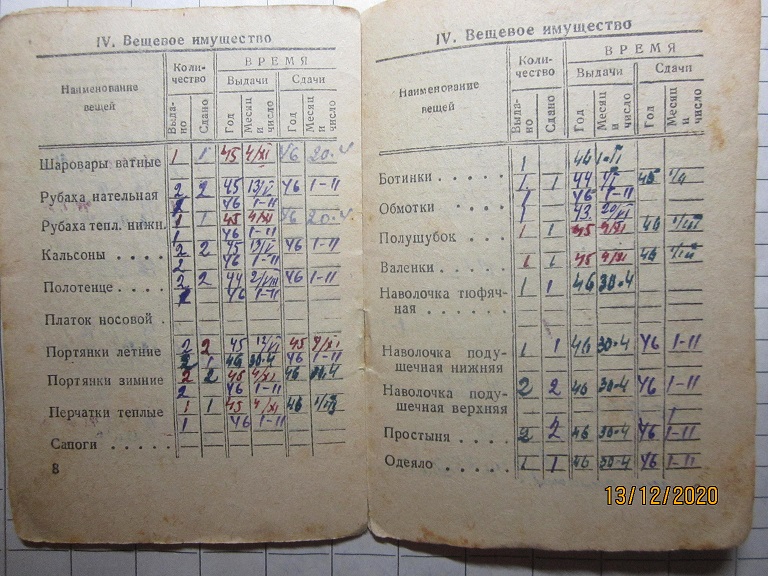 IV. Вещевое имущество
Наименование вещей
Коли-
чество
ВРЕМЯ
Выдачи
Сдачи
Выда-
но
Сдано
Год
Месяц и число
Год
Месяц и число
Шаровары ватные 1 1 45 4/XI 46 20.
Рубаха нательная 2 2 45 13/VI 46 1-11
2 46 1-11
Рубаха тепл. нижн. 1 1 45 4/XI 46 20.
1 46 1-11
Кальсоны . . . . 2 2 45 13/VI 46 1-11
2 46 1-11
Полотенце . . . . 2 2 44 2/VIII 46 1-11
46 1-11
Платок носовой .
Портянки летние 2 2 45 12/VI 45 4/XI
2 1 46 30.4 46 1-11
Портянки зимние 2 2 45 4/XI 46
2 46 1-11
Перчатки теплые 1 1 45 4/XI 46
1 46 1-11
Сапоги . . . . .
8
IV. Вещевое имущество
Наименование вещей
Коли-
чество
ВРЕМЯ
Выдачи
Сдачи
Выда-
но
Сдано
Год
Месяц и число
Год
Месяц и число
1 46
Ботинки . . . . . 1 1 44 45
1 46 1-11
Обмотки . . . . 1 43
Полушубок . . . 1 1 45 4/XI 46
Валенки . . . . . 1 1 45 4/XI 46
Наволочка тюфяч-
ная . . . . . . 1 1 46 30.4
Наволочка поду-
шечная нижняя 1 1 46 30.4 46 1-11
Наволочка поду-
шечная верхняя 2 2 46 30.4 46 1-11
Простыня . . . . 2 2 46 30.4 46 1-11
Одеяло . . . . . 1 1 46 30.4 46 1-11
13/12/2020